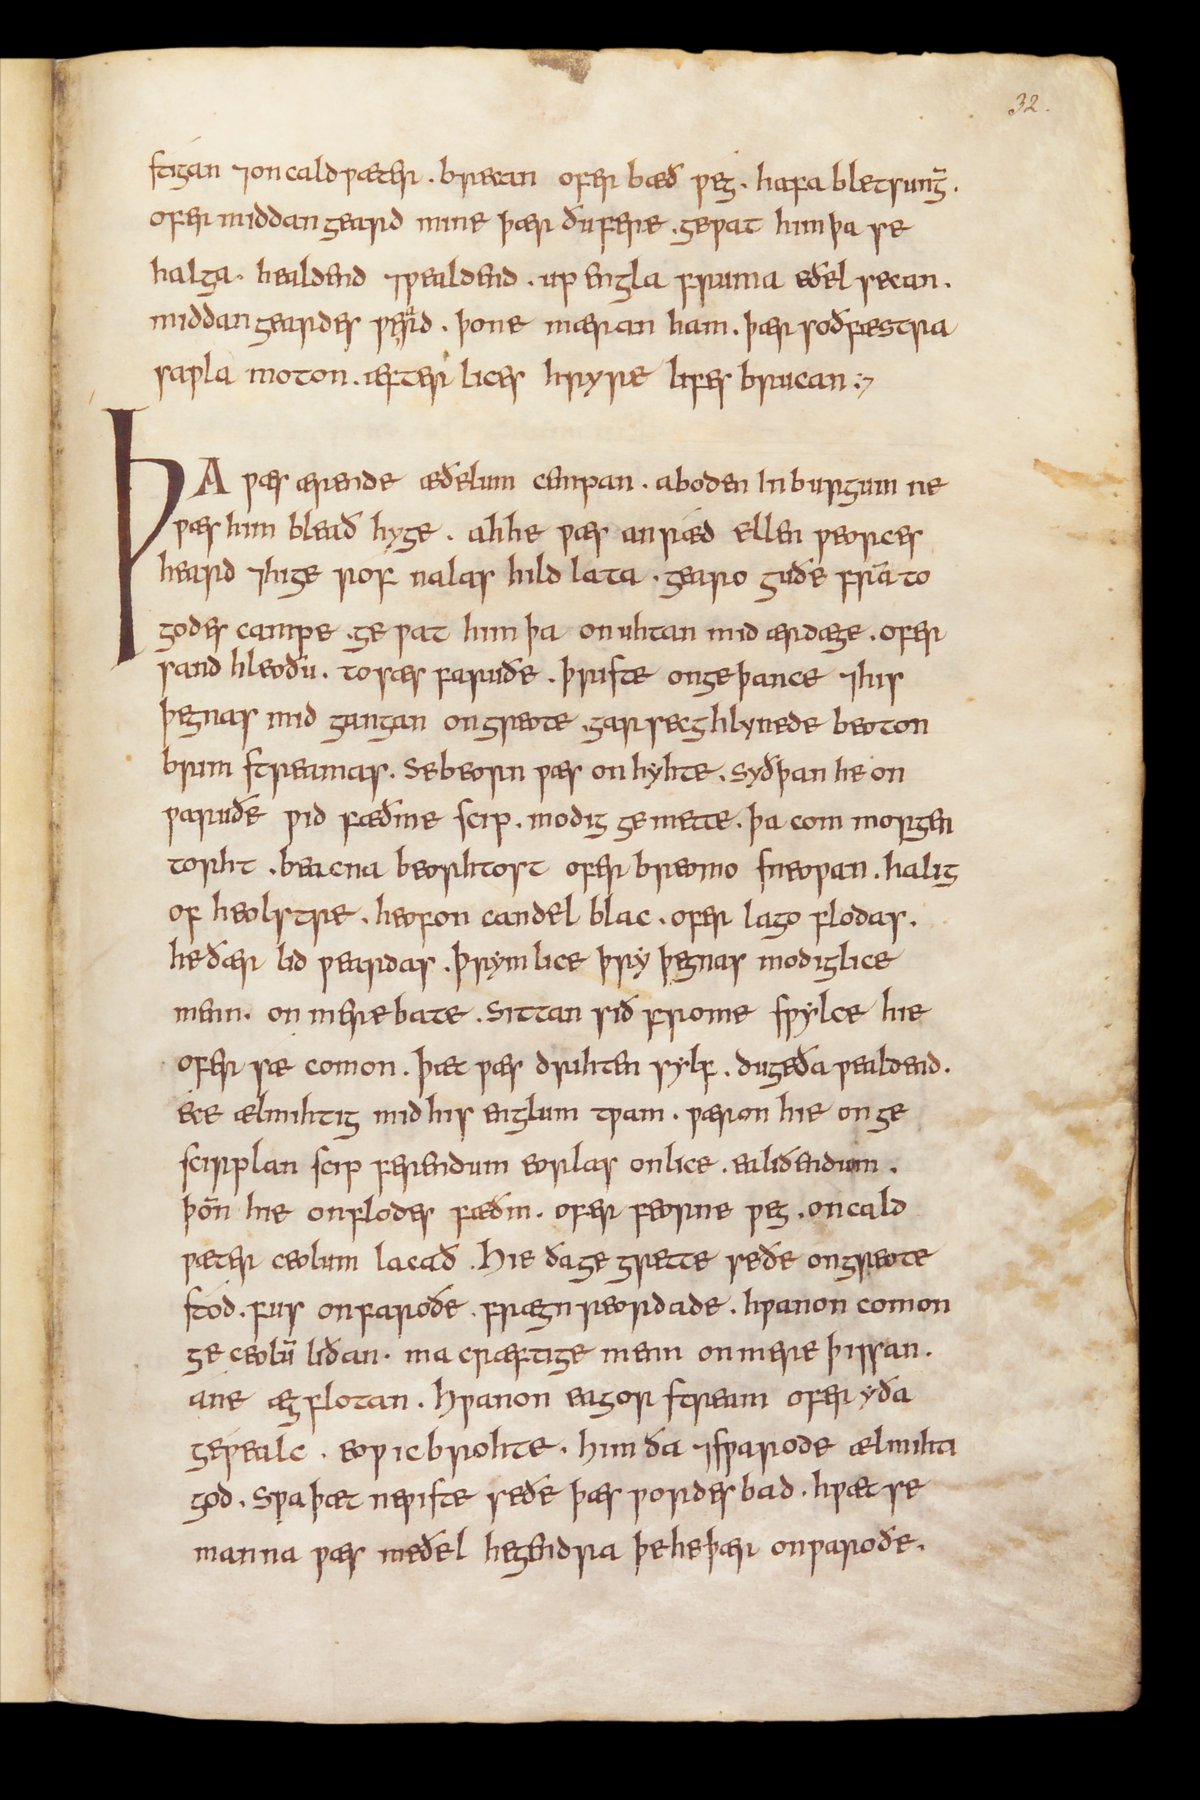 32.
stigan ⁊on cald pæter . brecan ofer bæð ƿeg . hafa bletsunḡ .
ofer middan geard mine þær ðu fere . geƿat him þa se
halga . healdend ⁊ƿealdend . up engla fruma eðel secan .
middan geardes ƿeard . þone mæran ham . þær soðfæstra
saƿla moton . æfter lices hryre lifes brucan :⁊
ÞA ƿæs ærende æðelum cempan . aboden In burgum ne
ƿæs him bleað hyge . ah he ƿæs anræd ellen ƿeorces
heard ⁊hige rof nalas hild lata . gearo guðe frā to
godes campe . ge ƿat him þa on uhtan mid ærdæge . ofer
sand hleoðu . to sæs faruðe . þriste on geþance ⁊his
þegnas mid gangan on greote . gar secg hlynede beoton
brim streamas . Se beorn ƿæs on hyhte . syðþan he on
ƿaruðe ƿid fæðme scip . modig ge mette . þa com morgen
torht . beacna beorhtost ofer breomo sneoƿan . halig
of heolstre . heofon candel blac . ofer lago flodas .
he ðær lid ƿeardas . þrymlice þry þegnas modiglice
menn . on mere bate . Sittan sið frome sƿylce hie
ofer sæ comon . þæt ƿæs drihten sylf . dugeða ƿealdend .
ece ælmihtig mid his englum tƿam . ƿæron hie on ge
scirplan scip ferendum eorlas onlice . ealiðendum .
þoñ hie on flodes fæðm . ofer feorne ƿeg . on cald
ƿæter ceolum lacað . Hie ða ge grette se ðe on greote
stod . fus on faroðe . frægn reordade . hƿanon comon
ge ceolū liðan . ma cræftige menn on mere þissan .
ane æg flotan . Hƿanon eagor stream ofer yða
geƿealc . eoƿic brohte . him ða ⁊sƿarode ælmihti
god . Sƿa þæt ne ƿiste se ðe þæs ƿordes bad . hƿæt se
manna ƿæs meðel hegendra þe he þær on ƿaroðe .